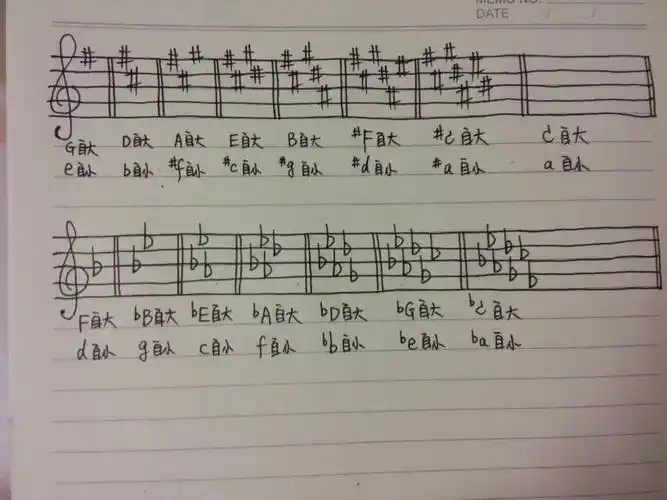 MEMO NO.
DATE / /
G自大 D自大 A自大 E自大 B自大 #F自大 #C自大 C自大
e自小 b自小 #f自小 #c自小 #g自小 #d自小 #a自小 a自小
F自大 bB自大 bE自大 bA自大 bD自大 bG自大 bC自大
d自小 g自小 c自小 f自小 bb自小 be自小 ba自小